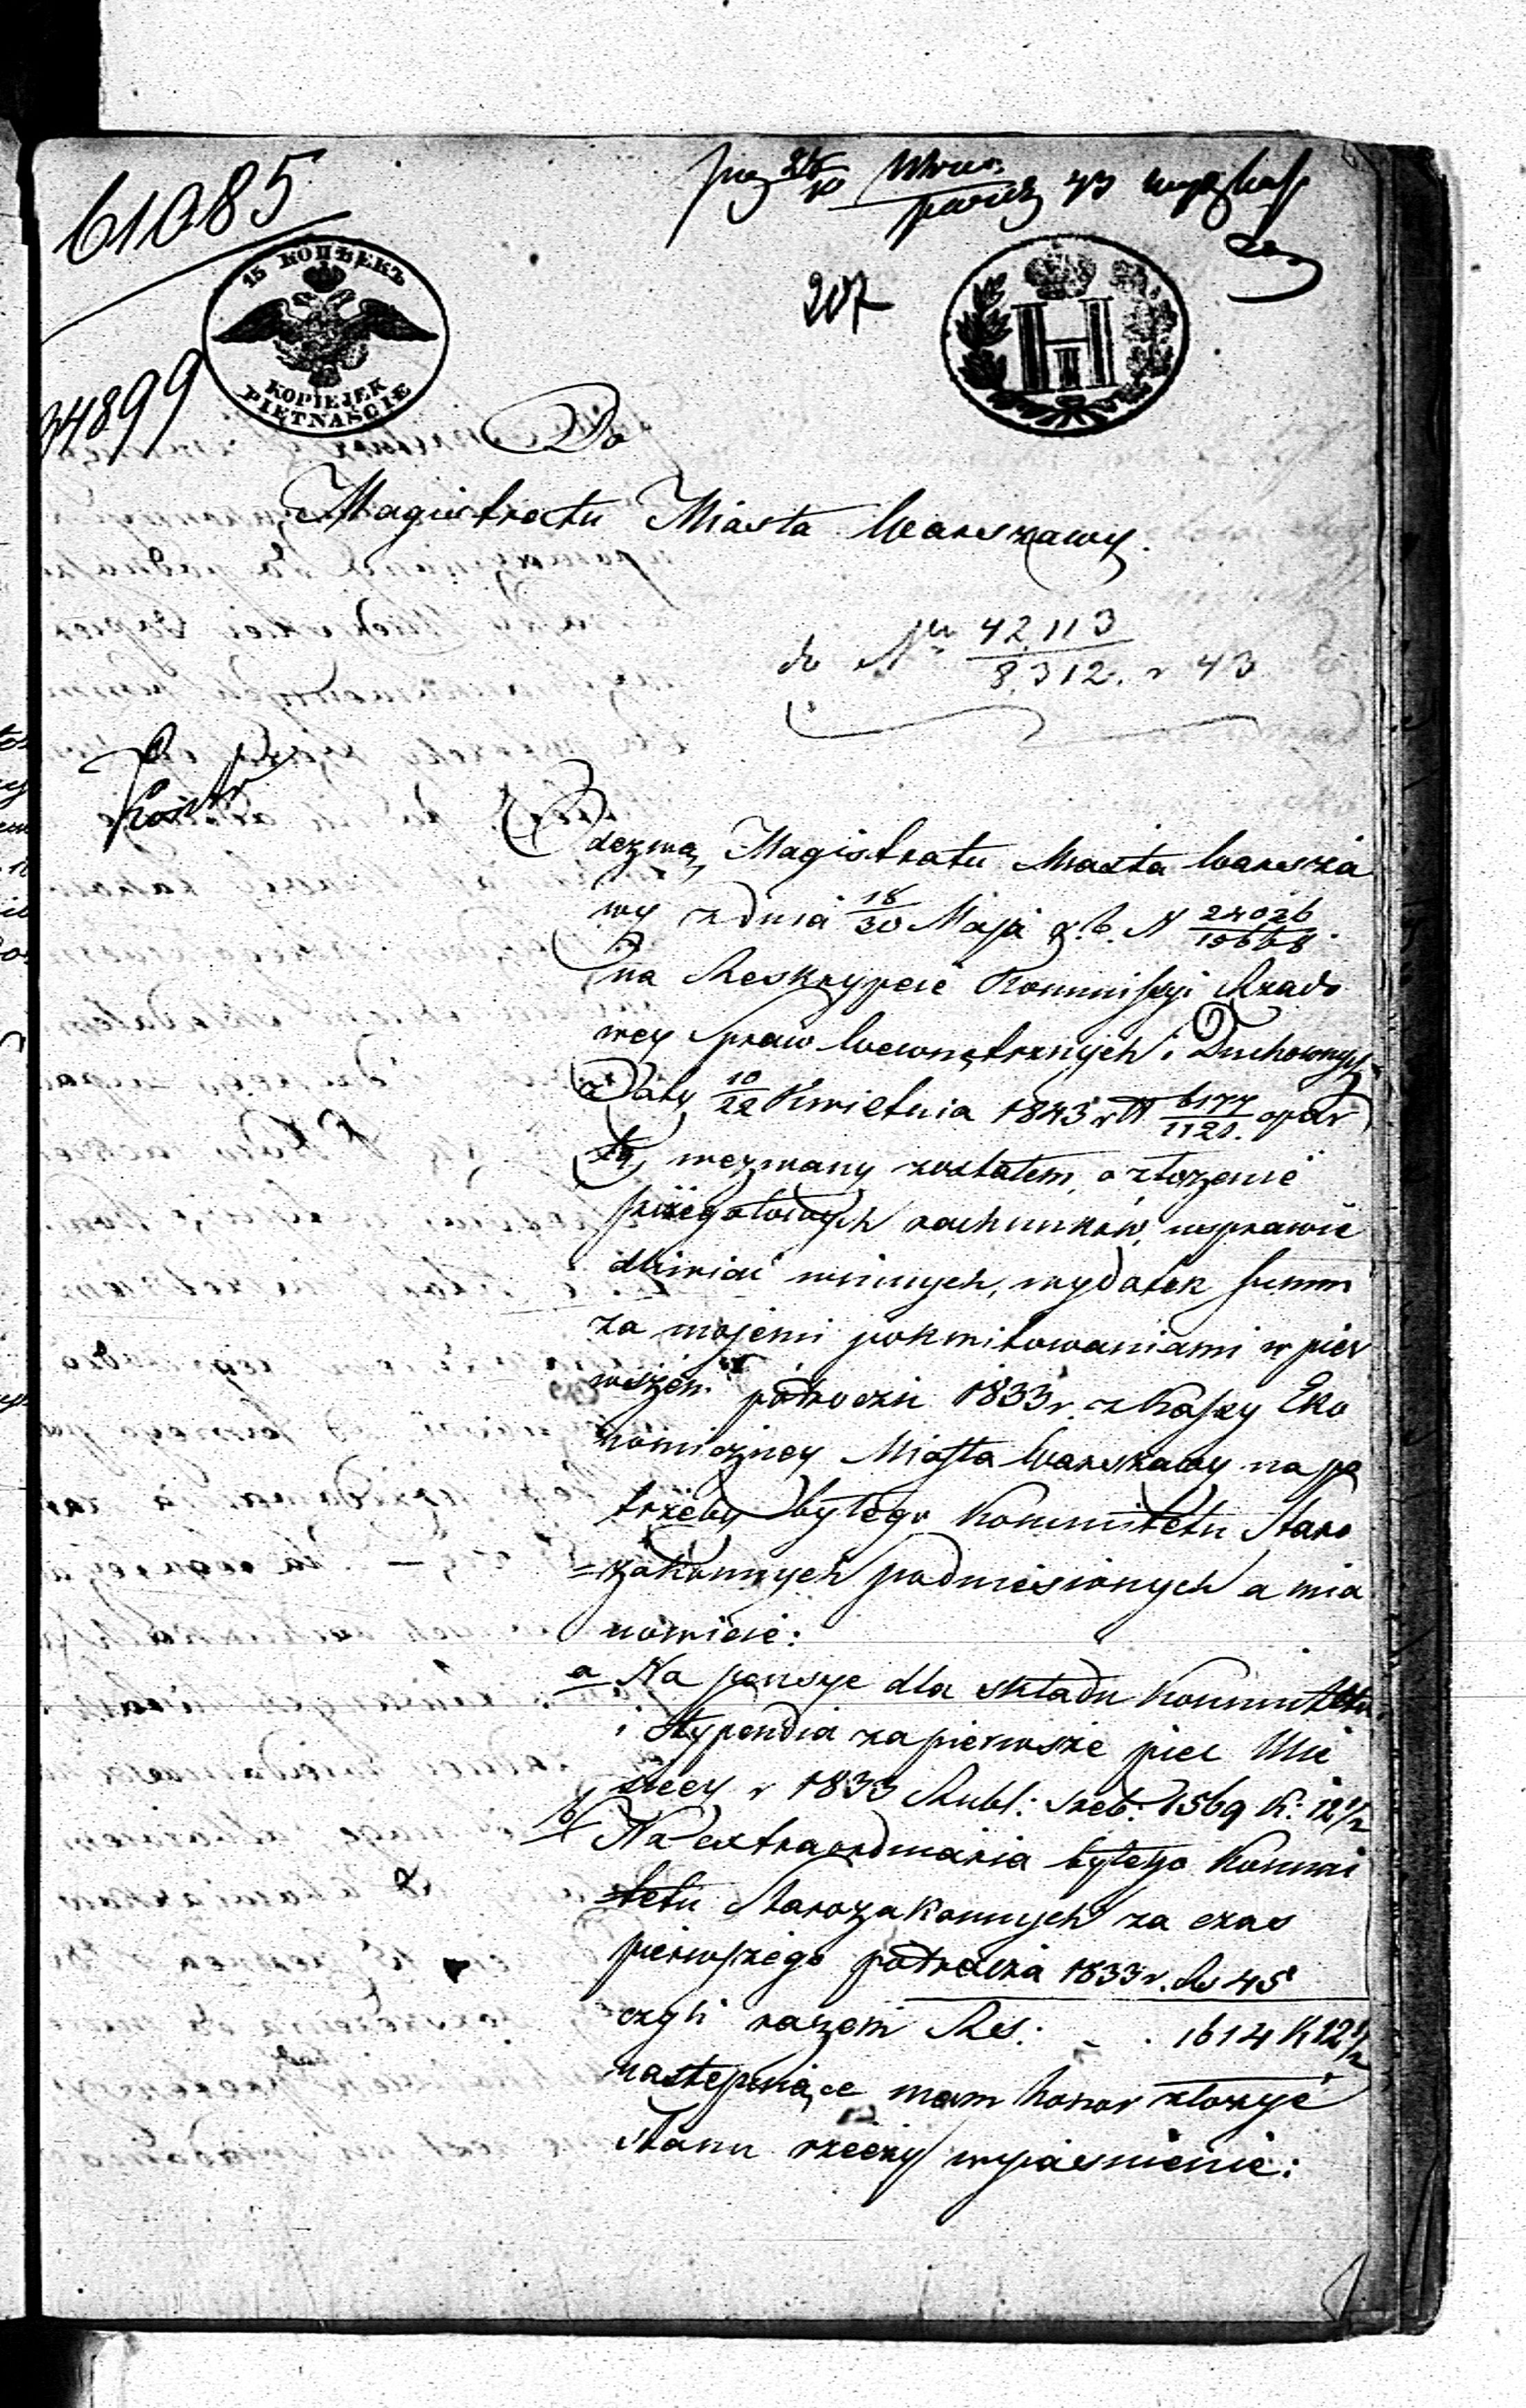 61085
15 КОПѢЕКЪ
KOPIEJEK
PIĘTNAŚCIE
34899
207
Do
Magistratu Miasta Warszawy.
do Nr 42,113
8,312. r 43
Odezwą Magistratu Miasta Warsza
wy z dnia 18/30 Maja r. b. N 24026/10668.
na Reskrypcie Kommissyi Rządo
wey Spraw Wewnętrznych i Duchownych
z Daty 10/22 Kwietnia 1843 r N 6177/1121. opar
tą, wezwany zostałem, o złożenie
szczegółowych rachunków, usprawie
dliwiać winnych, wydatek summ
za mojemi pokwitowaniami w pier
wszem półroczu 1833 r. z Kassy Eko
nomiczney Miasta Warszawy na po
trzeby byłego Kommitetu Staro
=zakonnych podniesionych a mia
nowicie:
a Na pensye dla składu Kommitetu
i Stypendia za pierwsze pięć Mie
sięcy r 1833 Rubl: sreb: 1569 K: 12½
b/ Na extraordinaria byłego Kommi
=tetu Starozakonnych za czas
pierwszego półrocza 1833 r. Rs 45
czyli razem Rs. - . 1614 K 12½
następujące mam honor złożyć
Stanu rzeczy wyjaśnienie: